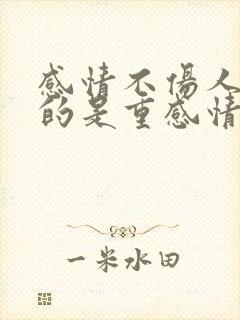 感情不傷人
的是重感情
一米水田